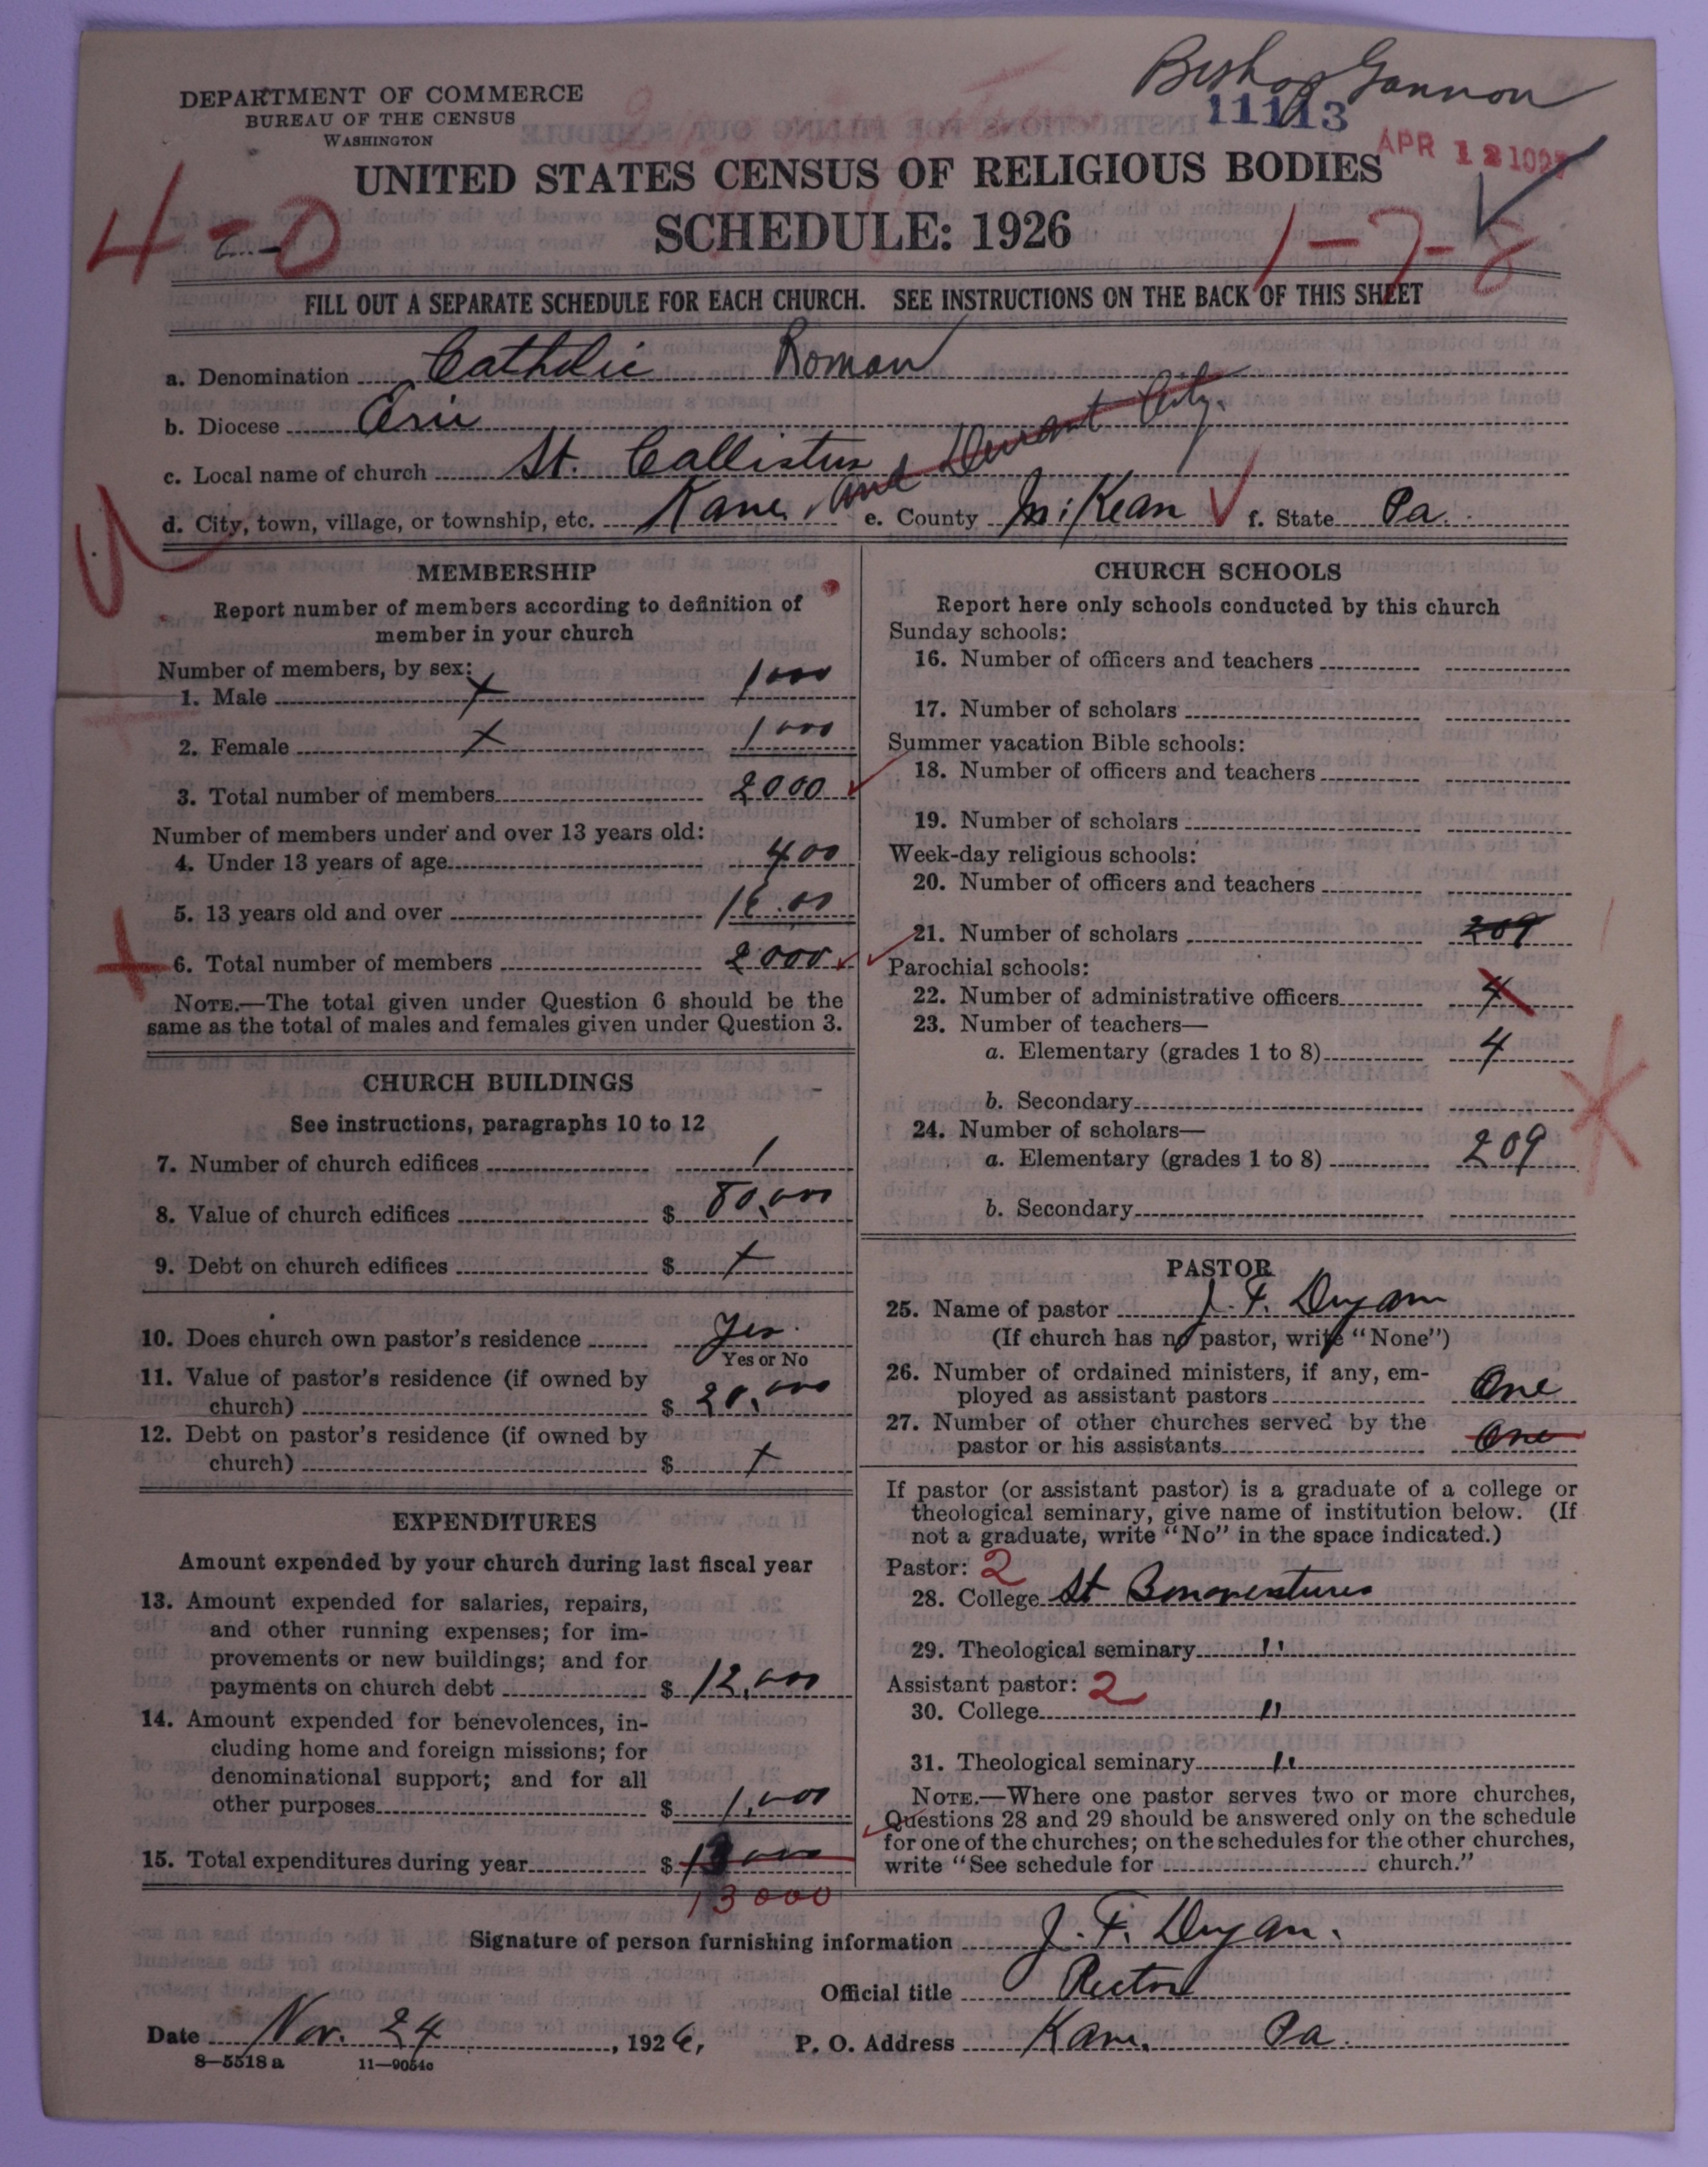 Bishop Gannon
DEPARTMENT OF COMMERCE
BUREAU OF THE CENSUS
WASHINGTON
11113
APR 12 1927
UNITED STATES CENSUS OF RELIGIOUS BODIES
SCHEDULE: 1926
4-0
1-7-8
FILL OUT A SEPARATE SCHEDULE FOR EACH CHURCH. SEE INSTRUCTIONS ON THE BACK OF THIS SHEET
a. Denomination Catholic Roman
b. Diocese Erie
c. Local name of church St. Callistus and Durant City.
d. City, town, village, or township, etc. Kane, e. County McKean f. State Pa.
MEMBERSHIP
Report number of members according to definition of
member in your church
Number of members, by sex:
1. Male x 1000
2. Female x 1000
3. Total number of members 2000
Number of members under and over 13 years old:
4. Under 13 years of age 400
5. 13 years old and over 1600
6. Total number of members 2000
NOTE.—The total given under Question 6 should be the
same as the total of males and females given under Question 3.
CHURCH BUILDINGS
See instructions, paragraphs 10 to 12
7. Number of church edifices 1
8. Value of church edifices $ 80,000
9. Debt on church edifices $ x
10. Does church own pastor's residence Yes.
Yes or No
11. Value of pastor's residence (if owned by
church) $ 20,000
12. Debt on pastor's residence (if owned by
church) $ x
EXPENDITURES
Amount expended by your church during last fiscal year
13. Amount expended for salaries, repairs,
and other running expenses; for im-
provements or new buildings; and for
payments on church debt $ 12,000
14. Amount expended for benevolences, in-
cluding home and foreign missions; for
denominational support; and for all
other purposes $ 1,000
15. Total expenditures during year $ 13000
13000
CHURCH SCHOOLS
Report here only schools conducted by this church
Sunday schools:
16. Number of officers and teachers
17. Number of scholars
Summer vacation Bible schools:
18. Number of officers and teachers
19. Number of scholars
Week-day religious schools:
20. Number of officers and teachers
21. Number of scholars 209
Parochial schools:
22. Number of administrative officers 4
23. Number of teachers—
a. Elementary (grades 1 to 8) 4
b. Secondary
24. Number of scholars—
a. Elementary (grades 1 to 8) 209
b. Secondary
PASTOR
25. Name of pastor J. F. Dugan
(If church has no pastor, write "None")
26. Number of ordained ministers, if any, em-
ployed as assistant pastors One
27. Number of other churches served by the
pastor or his assistants One
If pastor (or assistant pastor) is a graduate of a college or
theological seminary, give name of institution below. (If
not a graduate, write "No" in the space indicated.)
Pastor: 2
28. College St Bonaventures
29. Theological seminary "
Assistant pastor: 2
30. College "
31. Theological seminary "
NOTE.—Where one pastor serves two or more churches,
Questions 28 and 29 should be answered only on the schedule
for one of the churches; on the schedules for the other churches,
write "See schedule for church."
Signature of person furnishing information J. F. Dugan.
Official title Rector
Date Nov. 24, 1926, P. O. Address Kane, Pa.
8—5518 a 11—9054c